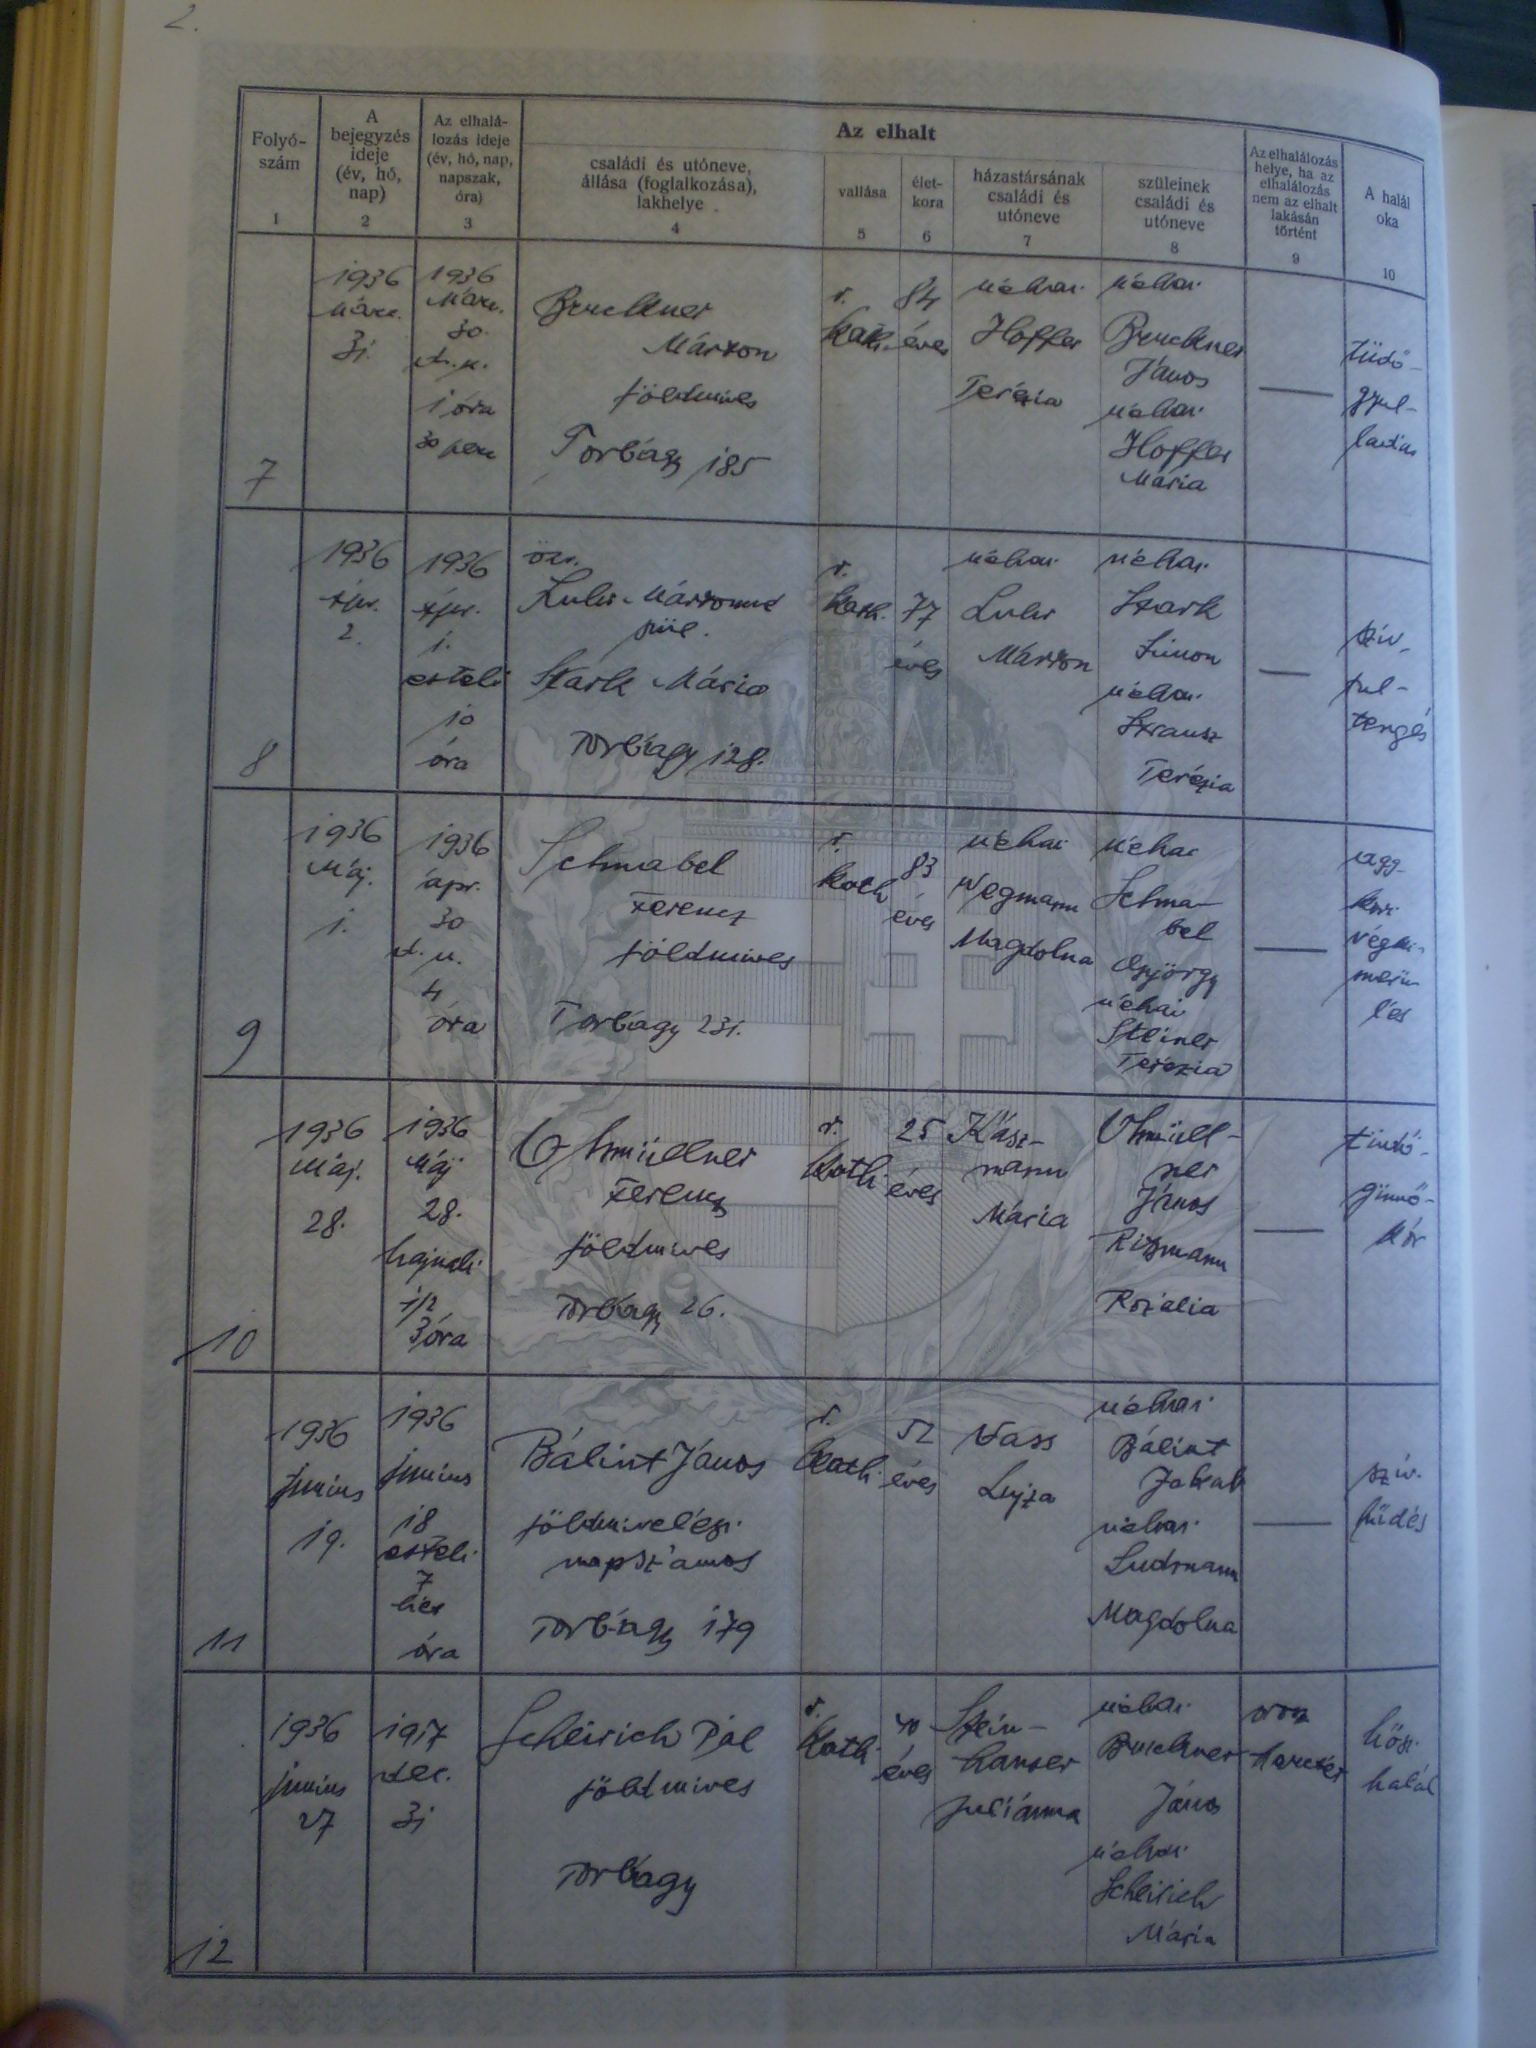 2.
Folyó-
szám
1
A
bejegyzés
ideje
(év, hó,
nap)
2
Az elhalá-
lozás ideje
(év, hó, nap,
napszak,
óra)
3
Az elhalt
családi és utóneve,
állása (foglalkozása),
lakhelye
4
vallása
5
élet-
kora
6
házastársának
családi és
utóneve
7
szüleinek
családi és
utóneve
8
Az elhalálozás
helye, ha az
elhalálozás
nem az elhalt
lakásán
történt
9
A halál
oka
10
7
1936
Márc.
31.
1936
Márc.
30.
d.u.
1 óra
30 perc
Bruckner
Márton
földmíves
Torbágy 185
r.
kath.
84
éves
néhai
Hoffer
Terézia
néhai
Bruckner
János
néhai
Hoffer
Mária
—
tüdő-
gyul-
ladás
8
1936
ápr.
2.
1936
ápr.
1.
esteli
10
óra
özv.
Luhr Mártonné
szül.
Stark Mária
Torbágy 128.
r.
kath.
77
éves
néhai
Luhr
Márton
néhai
Stark
Simon
néhai
Strausz
Terézia
—
szív-
túl-
tengés
9
1936
Máj.
1.
1936
ápr.
30
d.u.
4
óra
Schnabel
Ferencz
földmíves
Torbágy 231.
r.
kath
83
éves
néhai
Wegmann
Magdolna
néhai
Schna-
bel
György
néhai
Steiner
Terézia
—
agg-
kori
végki-
merü-
lés
10
1936
Máj.
28.
1936
Máj
28.
hajnali
1/2
3 óra
Ohmüllner
Ferencz
földmíves
Torbágy 26.
r.
kath.
25
éves
Kász-
mann
Mária
Ohmüll-
ner
János
Riszmann
Rozália
—
tüdő-
gümő-
kór
11
1936
június
19.
1936
június
18
esteli
7
óra
Bálint János
földmívelési
napszámos
Torbágy 179
r.
kath.
52
éves
Vass
Lujza
néhai
Bálint
Jakab
néhai
Ludmann
Magdolna
—
szív-
hűdés
12
1936
június
27
1917
dec.
31
Scheirich Pál
földmíves
Torbágy
r.
kath.
40
éves
Stein-
hauser
Juliánna
néhai
Bruckner
János
néhai
Scheirich
Mária
orosz
harctér
hősi
halál